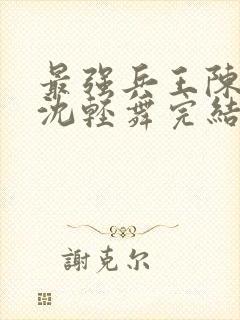 最强兵王陳
沈輕舞完結
謝克尔